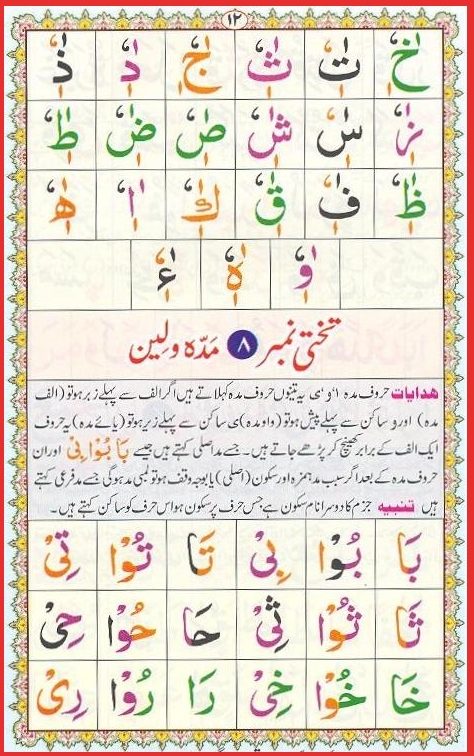 ١٢
خٰٖٗ تٰٖٗ ثٰٖٗ جٰٖٗ دٰٖٗ ذٰٖٗ
زٰٖٗ سٰٖٗ شٰٖٗ صٰٖٗ ضٰٖٗ طٰٖٗ
ظٰٖٗ فٰٖٗ قٰٖٗ كٰٖٗ اٰٖٗ ھٰٖٗ
وٰٖٗ ہٰٖٗ ءٰٖٗ
تختی نمبر ۸ مَدّہ و لِین
ھدایات حروف مدہ ا، و، ی یہ تینوں حروف مدہ کہلاتے ہیں اگر الف سے پہلے زبر ہو تو (الف
مدہ) اور و ساکن سے پہلے پیش ہو تو (واو مدہ) ی ساکن سے پہلے زیر ہو تو (یائے مدہ) یہ حروف
ایک الف کے برابر کھینچ کر پڑھے جاتے ہیں۔ جسے مد اصلی کہتے ہیں جیسے بَا بُوْا بِیْ اور ان
حروف مدہ کے بعد اگر سبب مد ہمزہ اور سکون (اصلی) یا بوجہ وقف ہو تو لمبی مد ہوگی جسے مد فرعی کہتے
ہیں تنبیه جزم کا دوسرا نام سکون ہے جس حرف پر سکون ہو اس حرف کو ساکن کہتے ہیں۔
بَا بُوْا بِیْ تَا تُوْا تِیْ
ثَا ثُوْا ثِیْ حَا حُوْا حِیْ
خَا خُوْا خِیْ رَا رُوْا رِیْ